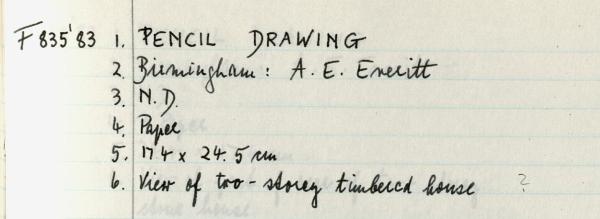 F835'83 1. PENCIL DRAWING
2. Birmingham: A. E. Everitt
3. N.D.
4. Paper
5. 17.4 x 24.5 cm
6. View of two-storey timbered house ?